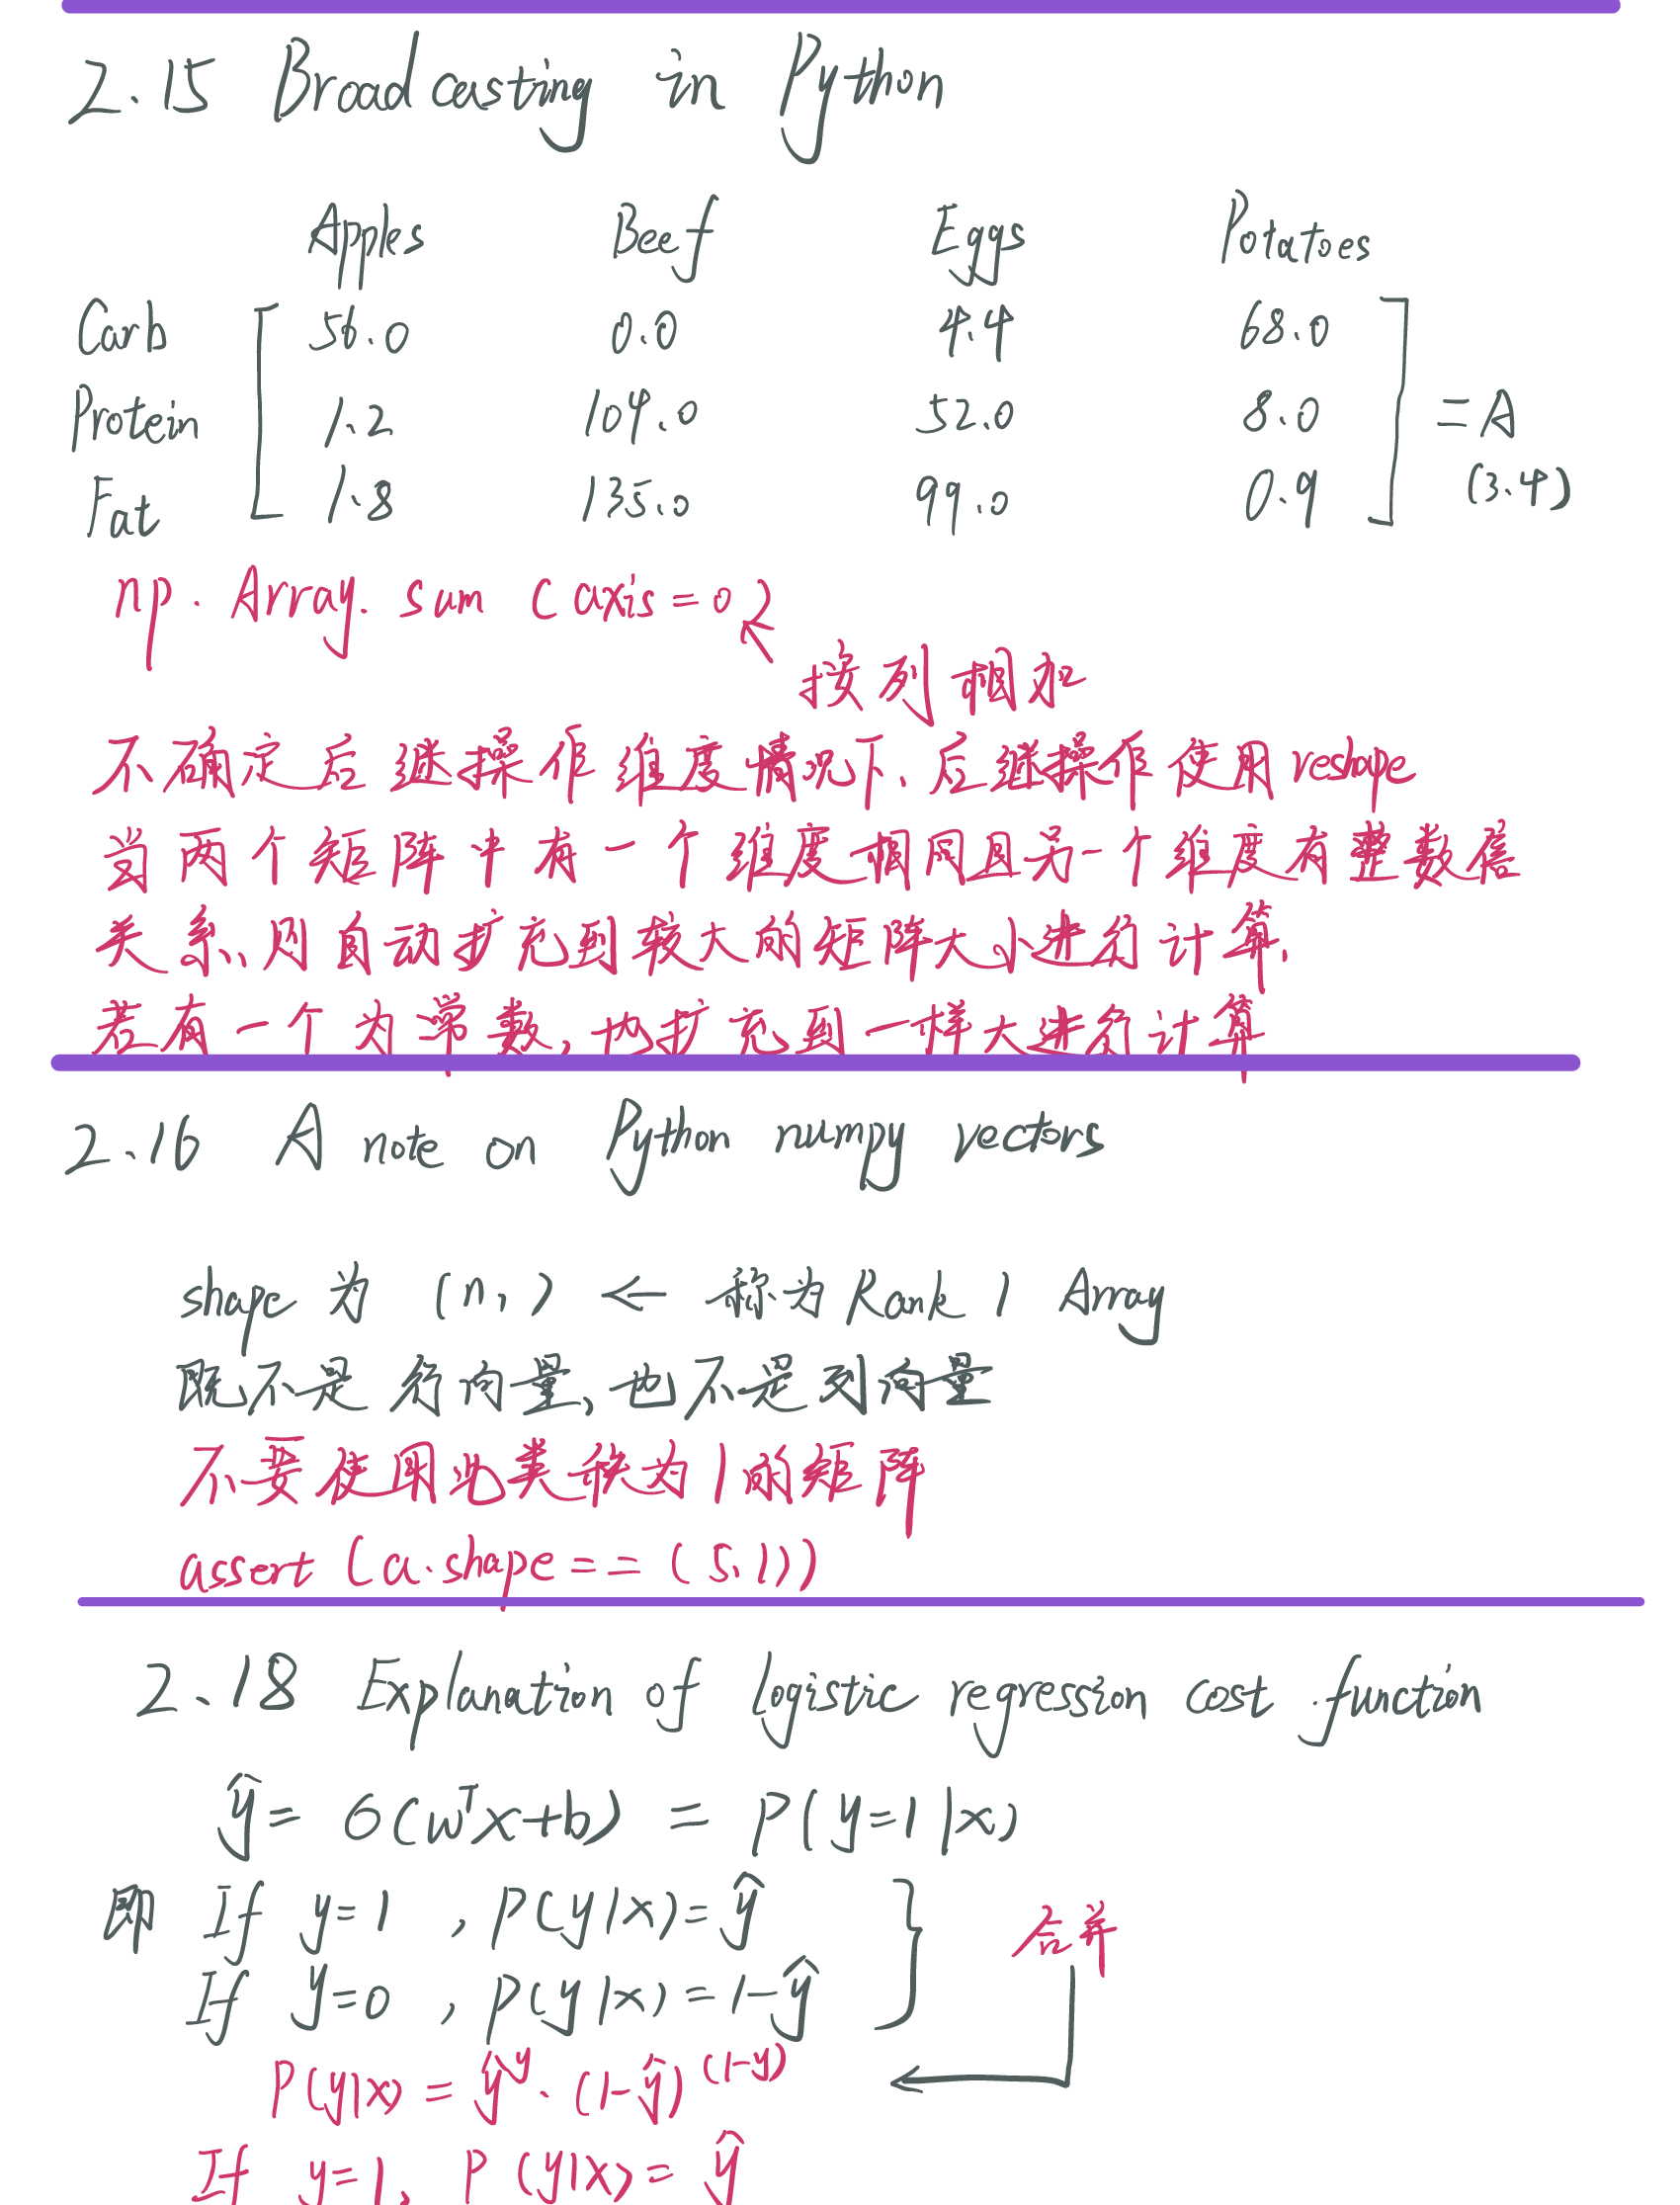 2.15 Broadcasting in Python
Apples Beef Eggs Potatoes
Carb [ 56.0 0.0 4.4 68.0 ]
Protein 1.2 104.0 52.0 8.0 = A
Fat 1.8 135.0 99.0 0.9 (3.4)
np. Array. sum (axis=0)
按列相加
不确定后继操作维度情况下、后继操作使用reshape
当两个矩阵中有一个维度相同且另一个维度有整数倍
关系、则自动扩充到较大的矩阵大小进行计算、
若有一个为常数,也扩充到一样大进行计算
2.16 A note on Python numpy vectors
shape 为 (n,) ← 称为 Rank 1 Array
既不是行向量,也不是列向量
不要使用此类秩为1的矩阵
assert (a.shape == (5,1))
2.18 Explanation of logistic regression cost function
ŷ = σ(wᵀx+b) = P(y=1|x)
即 If y=1 , P(y|x)=ŷ
If y=0 , P(y|x)=1-ŷ
合并
P(y|x) = ŷ^y · (1-ŷ)^(1-y)
If y=1, P(y|x) = ŷ